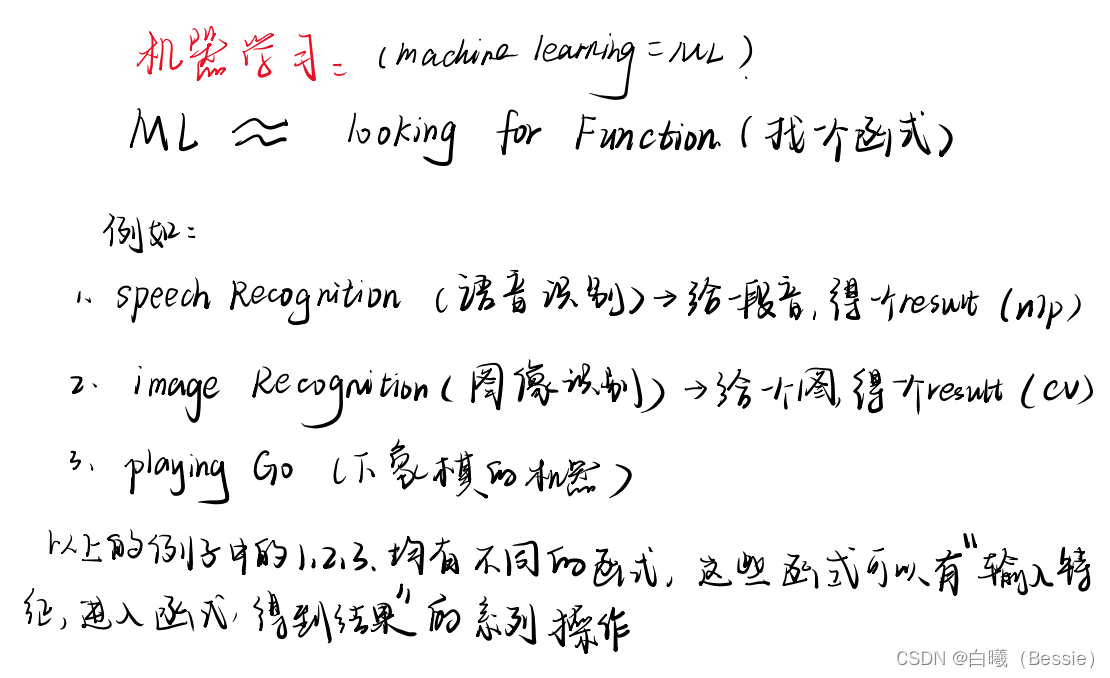 机器学习：（machine learning = ML）
ML ≈ looking for Function（找一个函式）
例如：
1、speech Recognition（语音识别）→给一段音，得一个result（nlp）
2、image Recognition（图像识别）→给一个图，得一个result（CV）
3、playing Go（下象棋的机器）
以上的例子中的1,2,3，均有不同的函式，这些函式可以有“输入特
征，进入函式，得到结果”的系列操作
CSDN @白曦（Bessie）